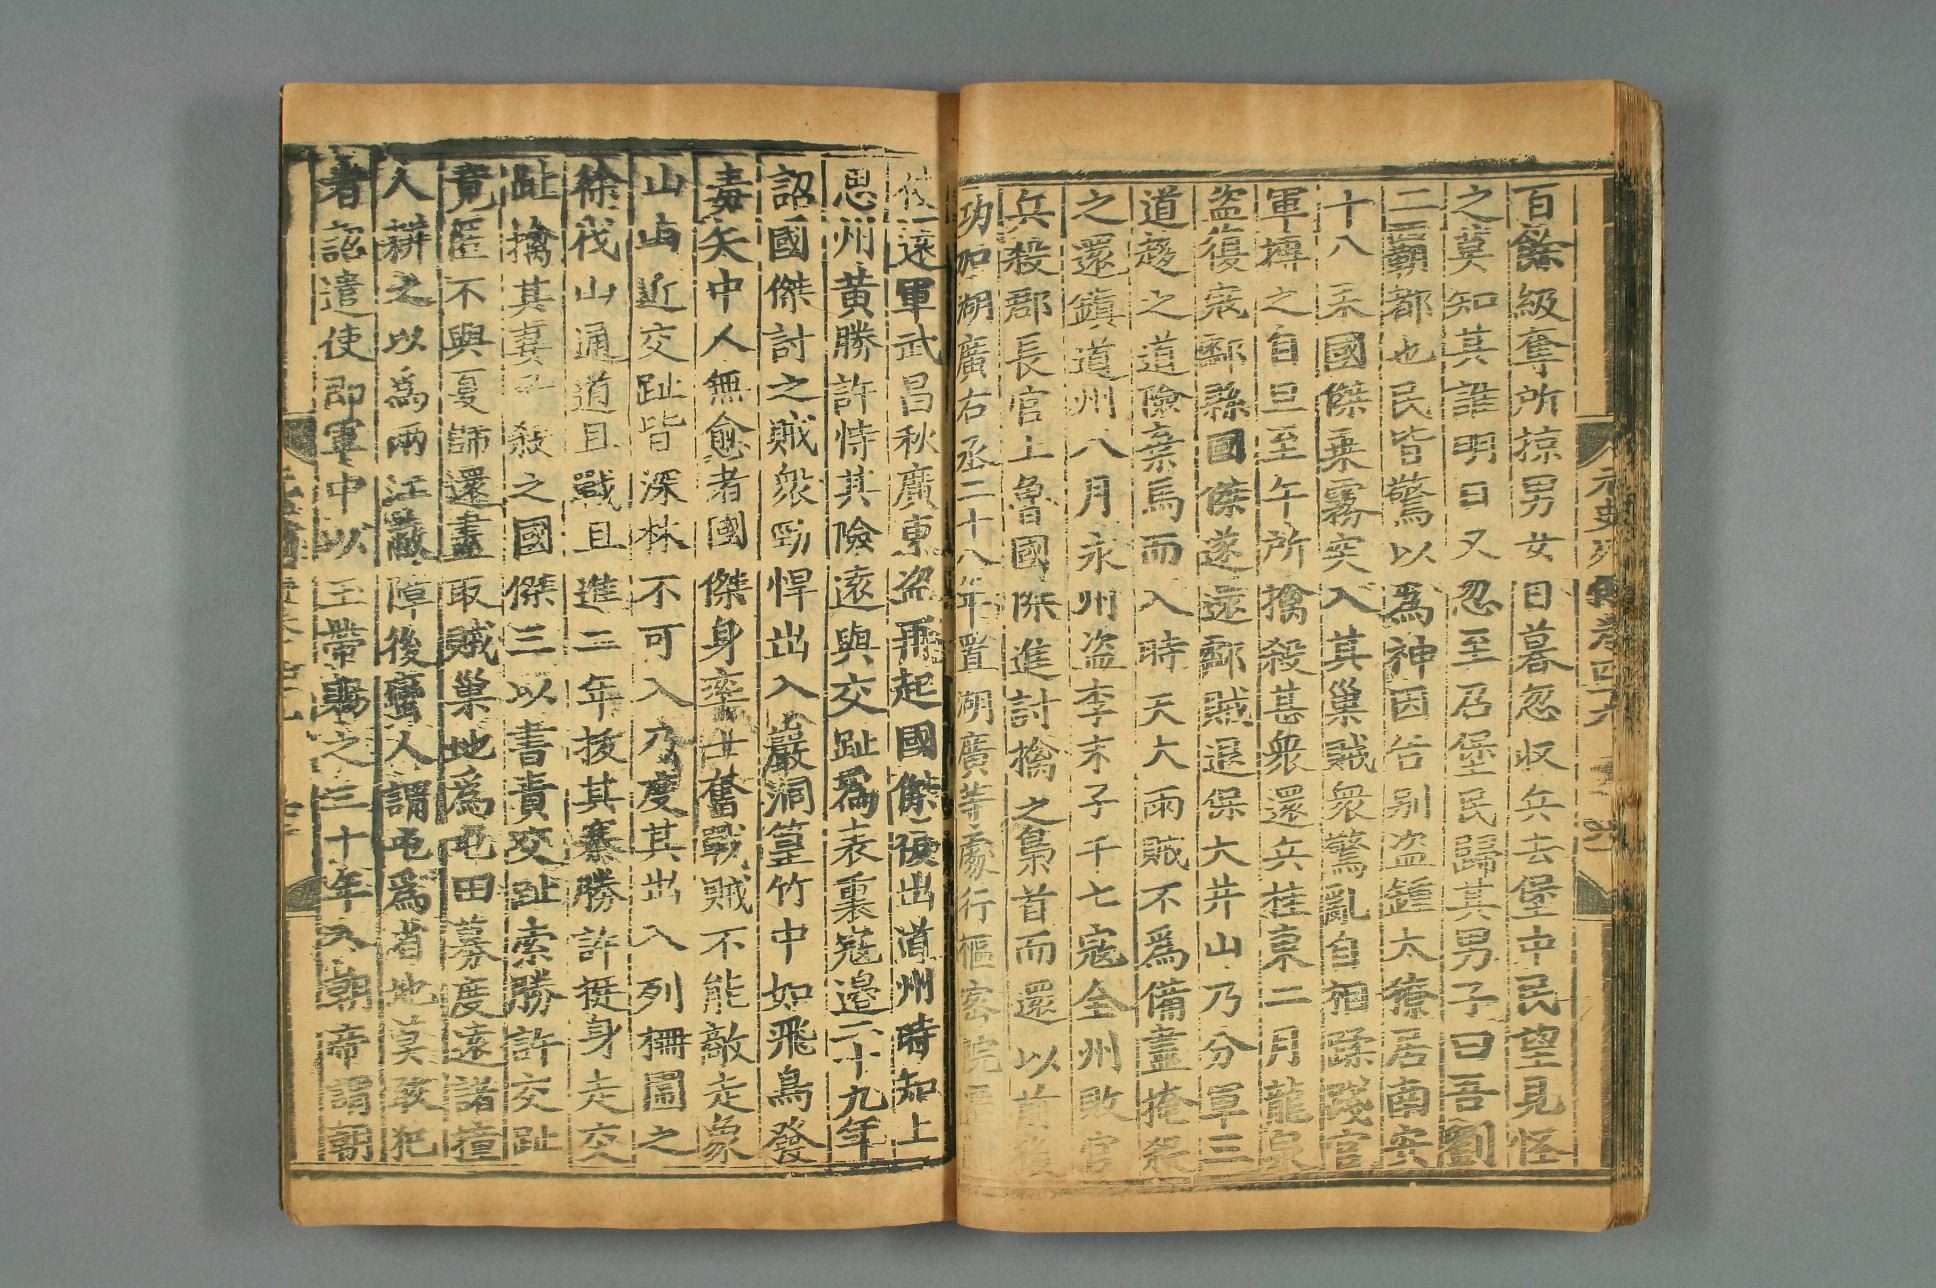 百餘級奪所掠男女日暮忽收兵去堡中民望見怪
之莫知其誰明日又忽至召堡民歸其男子曰吾劉
二霸都也民皆驚以爲神因告别盗鍾太獠居南安
十八耒國傑乗霧突入其巢賊衆驚亂自相蹂踐官
軍搏之自旦至午所擒殺甚衆還兵桂東二月龍泉
盗復寇酃縣國傑遂還酃賊退保大井山乃分軍三
道趍之道險棄馬而入時天大雨賊不爲備盡掩殺
之還鎮道州八月永州盗李末子千七寇全州敗官
兵殺郡長官土魯國傑進討擒之梟首而還以前後
功加湖廣右丞二十八年置湖廣等處行樞密院
遠軍武昌秋廣東盗再起國傑復出道州時知上
思州黄勝許恃其險遠與交趾爲表裏寇邉二十九年
詔國傑討之賊衆勁悍出入巖洞篁竹中如飛鳥發
毒矢中人無愈者國傑身率士奮戰賊不能敵走象
山山近交趾皆深林不可入乃度其出入列栅圍之
徐伐山通道且戰且進二年拔其寨勝許挺身走交
趾擒其妻子殺之國傑三以書責交趾索勝許交趾
竟匿不與夏師還盡取賊巢地爲屯田募度遠諸撞
人耕之以爲兩江蔽障後蠻人謂屯爲省地莫敢犯
者詔遣使即軍中以玉帶賜之三十年入朝帝謂朝
元史列傳卷四十九